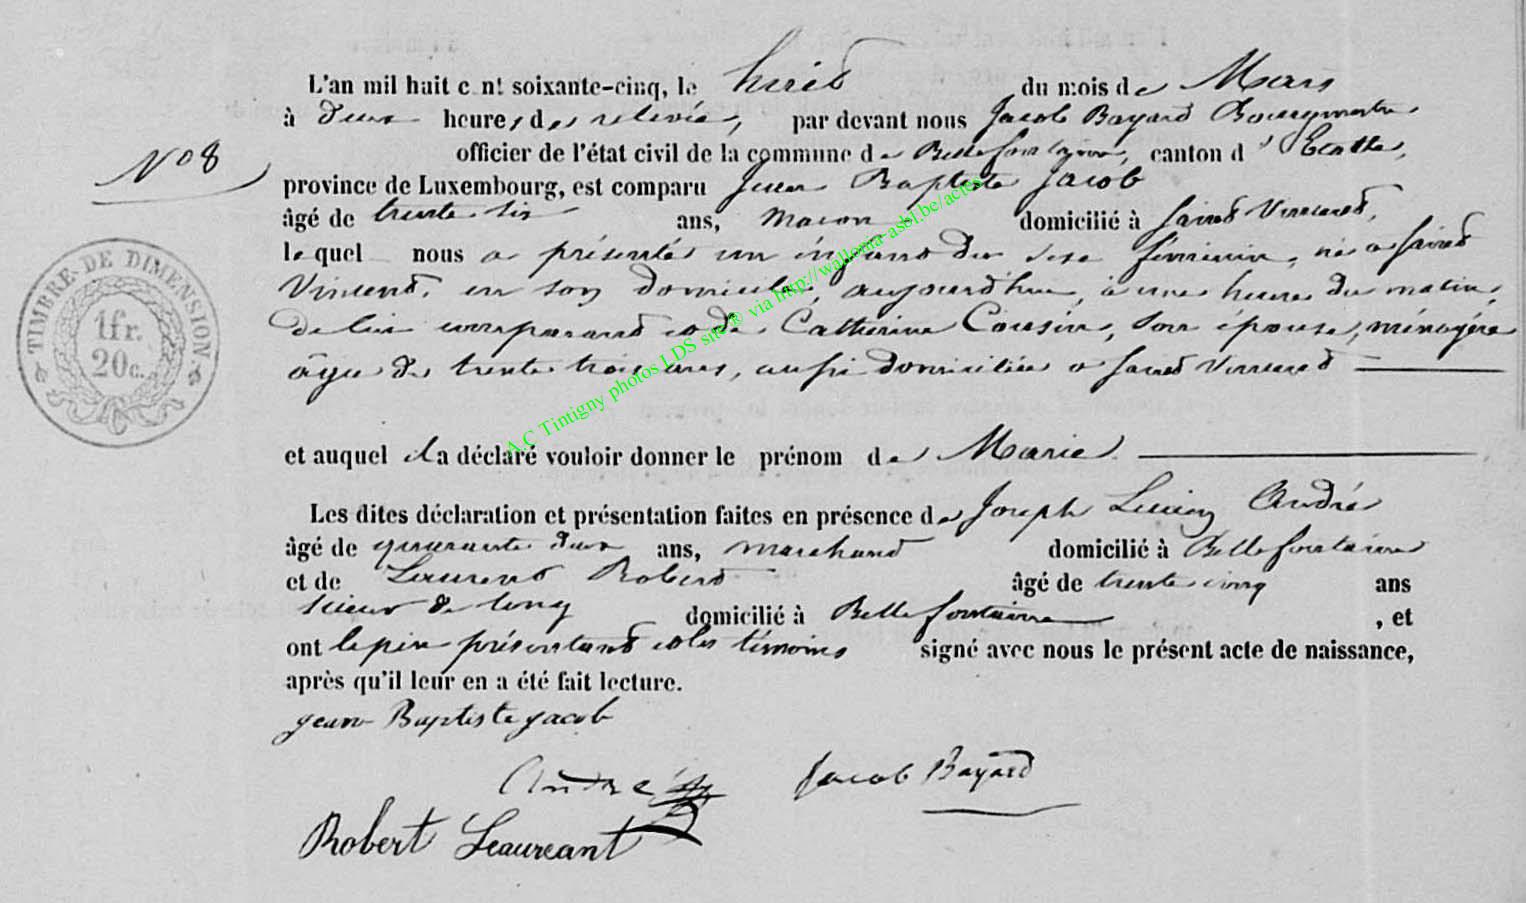 L'an mil huit c nt soixante-cinq, le huit du mois de Mars
à deux heures de relevée, par devant nous Jacob Bayard Bourgmestre
N° 8
officier de l'état civil de la commune de Bellefontaine, canton d' Etalle,
province de Luxembourg, est comparu Jean Baptiste Jacob
âgé de trente six ans, maçon domicilié à Saint Vincent,
le quel nous a présenté un enfant du sexe féminin, né a Saint
Vincent, en son domicile, aujourd'hui, à une heure du matin,
de lui comparant et de Catherine Cousin, son épouse, ménagère
âgée de trente trois ans, aussi domiciliée a Saint Vincent
TIMBRE DE DIMENSION.
1fr.
20c.
A.C Tintigny photos LDS site® via http://wallonia-asbl.be/actes
et auquel il a déclaré vouloir donner le prénom de Marie
Les dites déclaration et présentation faites en présence de Joseph Lucien André
âgé de quarante deux ans, marchand domicilié à Bellefontaine
et de Laurent Robert âgé de trente cinq ans
scieur de long domicilié à Bellefontaine , et
ont le père présentant et les témoins signé avec nous le présent acte de naissance,
après qu'il leur en a été fait lecture.
jean Baptiste jacob
André Jacob Bayard
Robert Leaureant